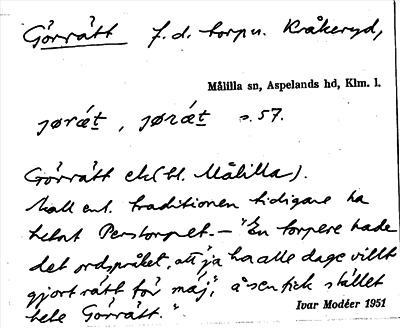 Görrätt f. d. torp u. Kråkeryd,
Målilla sn, Aspelands hd, Klm. l.
jøræt, jøræt s. 57.
Görrätt ek (bl. Målilla).
Skall enl. traditionen tidigare ha
hetat Perstorpet. – "En torpare hade
det ordspråket, att 'ja ha alle dage villt
gjort rätt för mäj', å sen fick stället
hete Görrätt."
Ivar Modéer 1951